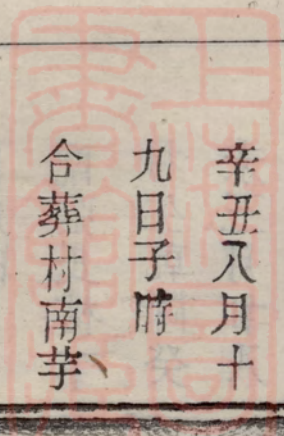 辛丑八月十
九日子時
合葬村南芋